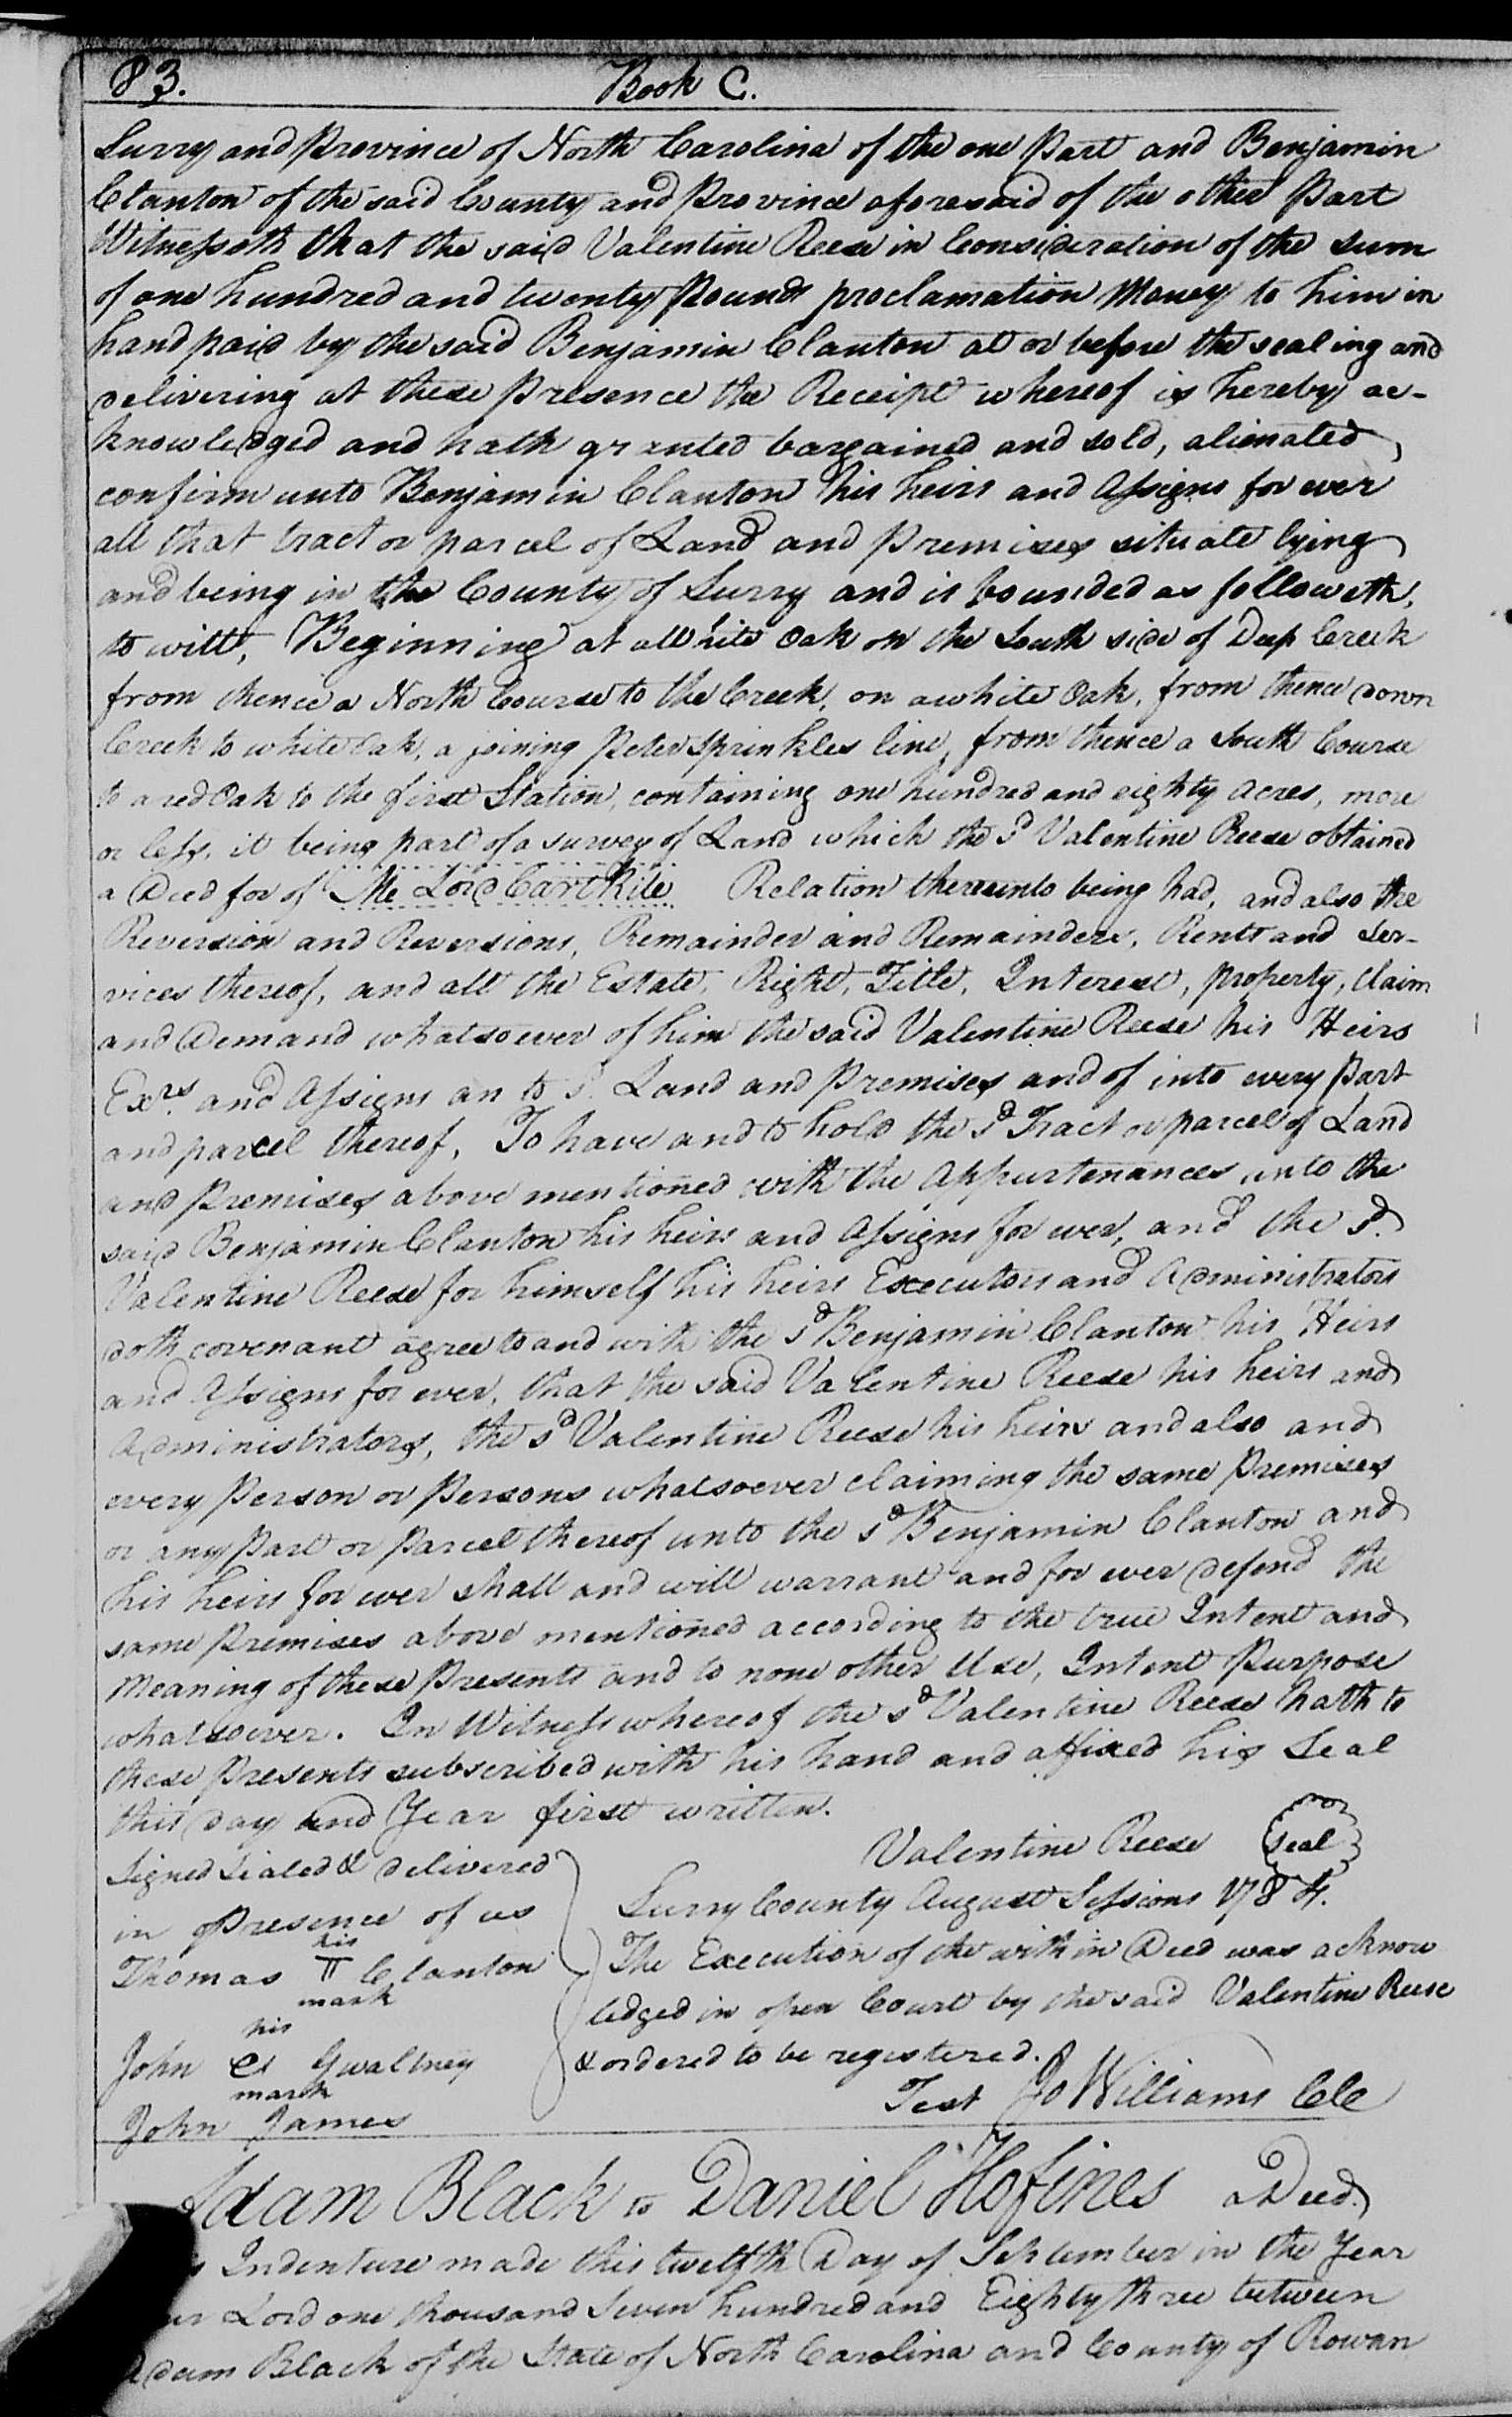 83. Book C.
Surry and Province of North Carolina of the one Part and Benjamin
Clanton of the said County and Province aforesaid of the other Part
Witnesseth that the said Valentine Reese in Consideration of the sum
of one hundred and twenty Pounds proclamation Money to him in
hand paid by the said Benjamin Clanton at or before the sealing and
delivering at these presence the Receipt whereof is hereby ac-
knowledged and hath granted bargained and sold, alienated,
confirm unto Benjamin Clanton his heirs and Assigns for ever
all that tract or parcel of Land and Premises situate lying
and being in the County of Surry and is bounded as followeth,
to witt, Beginning at a White Oak on the South side of Deep Creek
from thence a North Course to the Creek, on a white Oak, from thence down
Creek to white Oak, a joining Peter Sprinkles line, from thence a South Course
to a red Oak to the first Station, containing one hundred and eighty Acres, more
or less, it being part of a survey of Land which the sd Valentine Reese obtained
a Deed for of Me Lord Cart Rite Relation thereunto being had, and also the
Reversion and Reversions, Remainder and Remainders, Rents and Ser-
vices thereof, and all the Estate, Right, Title, Interest, property, Claim
and Demand whatsoever of him the said Valentine Reese his Heirs
Exrs. and Assigns an to sd. Land and Premises and of into every Part
and parcel thereof, To have and to hold the sd Tract or parcel of Land
and Premises above mentioned with the Appurtenances unto the
said Benjamin Clanton his heirs and Assigns for ever, and the sd.
Valentine Reese for himself his heirs Executors and Administrators
doth covenant agree to and with the sd Benjamin Clanton his Heirs
and Assigns for ever, that the said Valentine Reese his heirs and
Administrators, the sd Valentine Reese his heirs and also and
every Person or Persons whatsoever claiming the same Premises
or any Part or Parcel thereof unto the sd Benjamin Clanton and
his heirs for ever shall and will warrant and for ever defend the
same Premises above mentioned according to the true Intent and
Meaning of these Presents and to none other Use, Intent Purpose
whatsoever. In Witness whereof the sd Valentine Reese hath to
these Presents subscribed with his hand and affixed his Seal
this day and Year first written.
Valentine Reese Seal
Signed Sealed & delivered
in Presence of us
his
Thomas TT Clanton
mark
his
John Gwaltney
mark
John James
Surry County August Sessions 1784.
The Execution of the within Deed was acknow
ledged in open Court by the said Valentine Reese
& ordered to be registered.
Test Jo Williams Clc
Adam Black to Daniel Hofines a Deed.
Indenture made this twelfth Day of September in the Year
Lord one thousand Seven hundred and Eighty three between
Adam Black of the State of North Carolina and County of Rowan